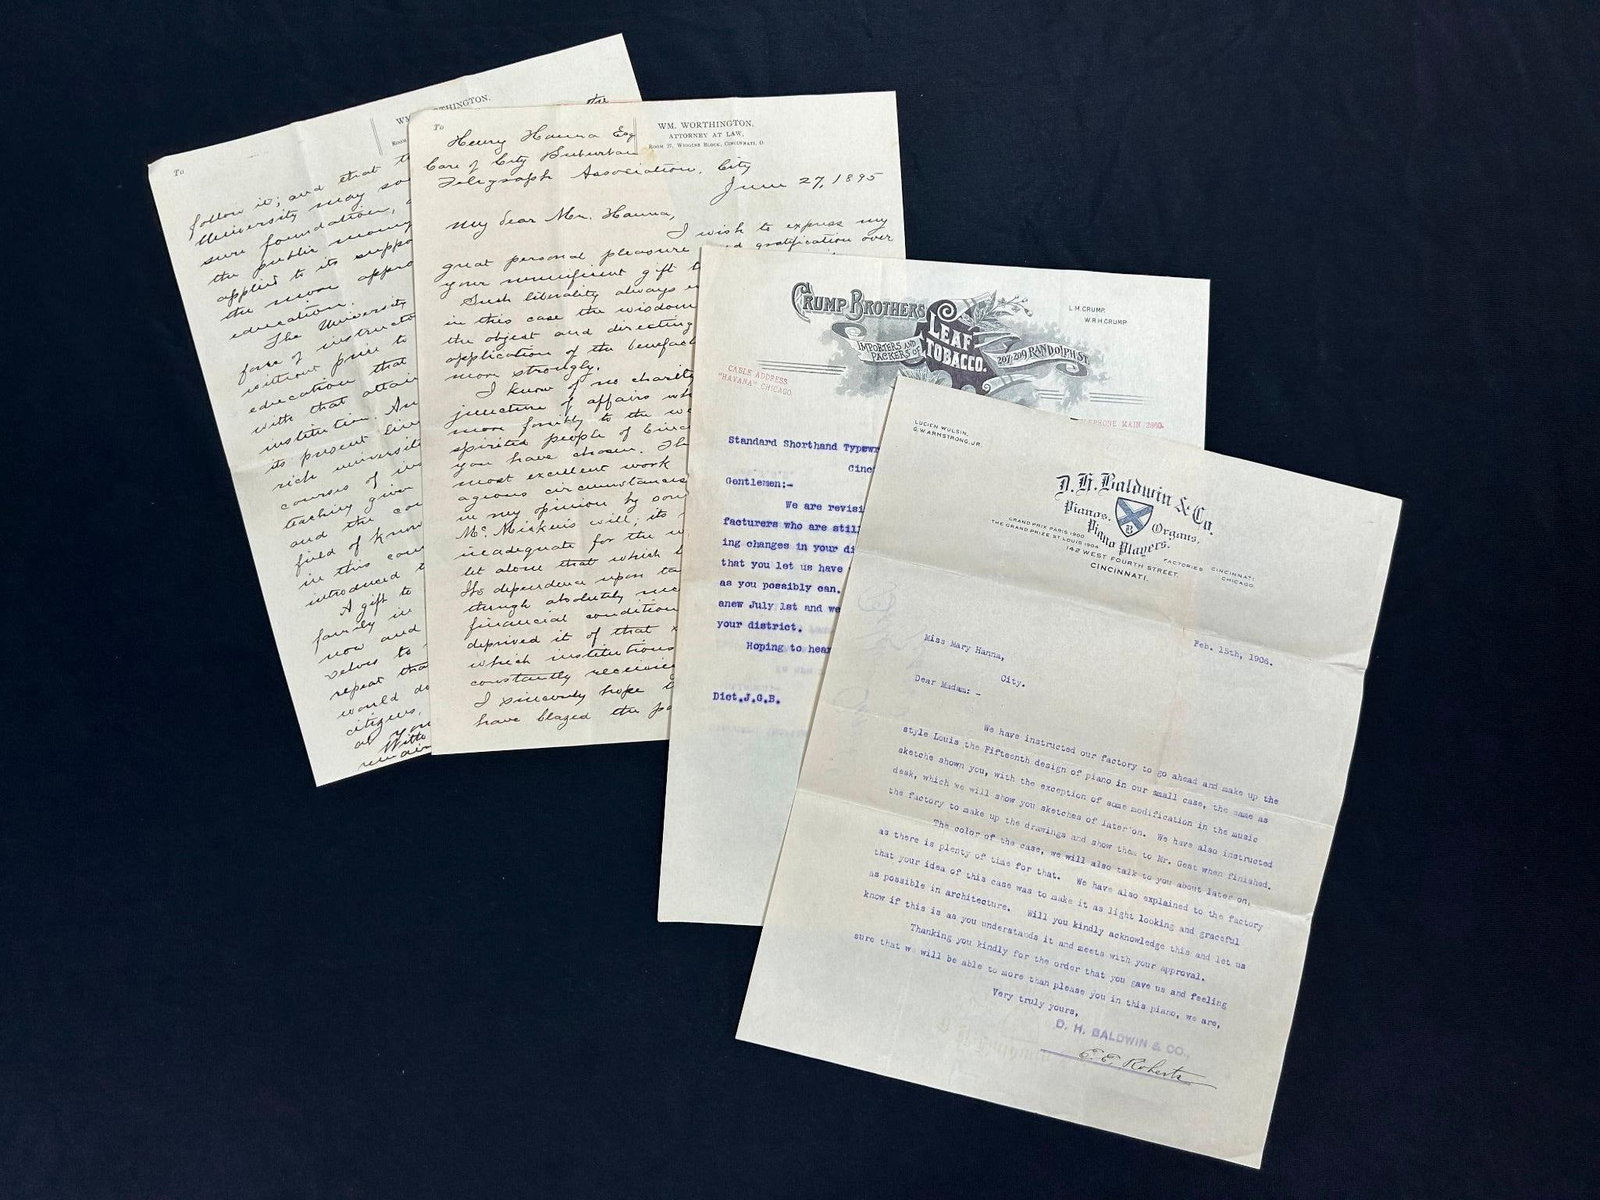 To
WM. WORTHINGTON.
follow it; and that
University may
sure foundation,
the public money
applied to its support
the more
education.
The University
force of instructors
without price to
education that
with that
institution.
its present
rich
courses of
teaching given
and the
field of
in this
introduced
A gift to
now and
repeat that
would do
citizens,
To
Henry Hanna Esq
Care of City Suburban
Telegraph Association, City
WM. WORTHINGTON,
ATTORNEY AT LAW,
ROOM 27, WIGGINS BLOCK, CINCINNATI, O.
June 27, 1895
My dear Mr. Hanna,
I wish to express my
great personal pleasure and gratification over
your munificent gift to
Such liberality always
in this case the wisdom
the object and directing
application of the
more strongly.
I know of no charity
juncture of affairs
more forcibly to the
spirited people of
you have chosen. The
most excellent work
circumstances
in my opinion by
Mr. McMicken's will; its
inadequate for the
let alone that which
Its dependence upon
though absolutely
financial condition
deprived it of that
which institutions
constantly receive
I sincerely hope
have blazed the
CRUMP BROTHERS
LEAF TOBACCO.
IMPORTERS AND PACKERS OF
207-209 RANDOLPH ST.
L.H. CRUMP.
W.R.H. CRUMP
CABLE ADDRESS
"HAVANA" CHICAGO
TELEPHONE MAIN 2860.
Standard Shorthand Typewr
Cinc
Gentlemen:-
We are revisi
facturers who are still
ing changes in your di
that you let us have
as you possibly can.
anew July 1st and we
your district.
Hoping to hear
Dict.J.G.B.
LUCIEN WULSIN,
G.W. ARMSTRONG, JR.
D. H. Baldwin & Co.
Pianos, Organs,
Piano Players.
GRAND PRIX PARIS 1900
THE GRAND PRIZE ST. LOUIS 1904
FACTORIES CINCINNATI. CHICAGO.
142 WEST FOURTH STREET,
CINCINNATI.
Feb. 15th, 1906.
Miss Mary Hanna,
City.
Dear Madam: -
We have instructed our factory to go ahead and make up the
style Louis the Fifteenth design of piano in our small case, the same as
sketche shown you, with the exception of some modification in the music
desk, which we will show you sketches of later on. We have also instructed
the factory to make up the drawings and show them to Mr. Gest when finished.
The color of the case, we will also talk to you about later on,
as there is plenty of time for that. We have also explained to the factory
that your idea of this case was to make it as light looking and graceful
as possible in architecture. Will you kindly acknowledge this and let us
know if this is as you understands it and meets with your approval.
Thanking you kindly for the order that you gave us and feeling
sure that we will be able to more than please you in this piano, we are,
Very truly yours,
D. H. BALDWIN & CO.,
E. E. Roberts